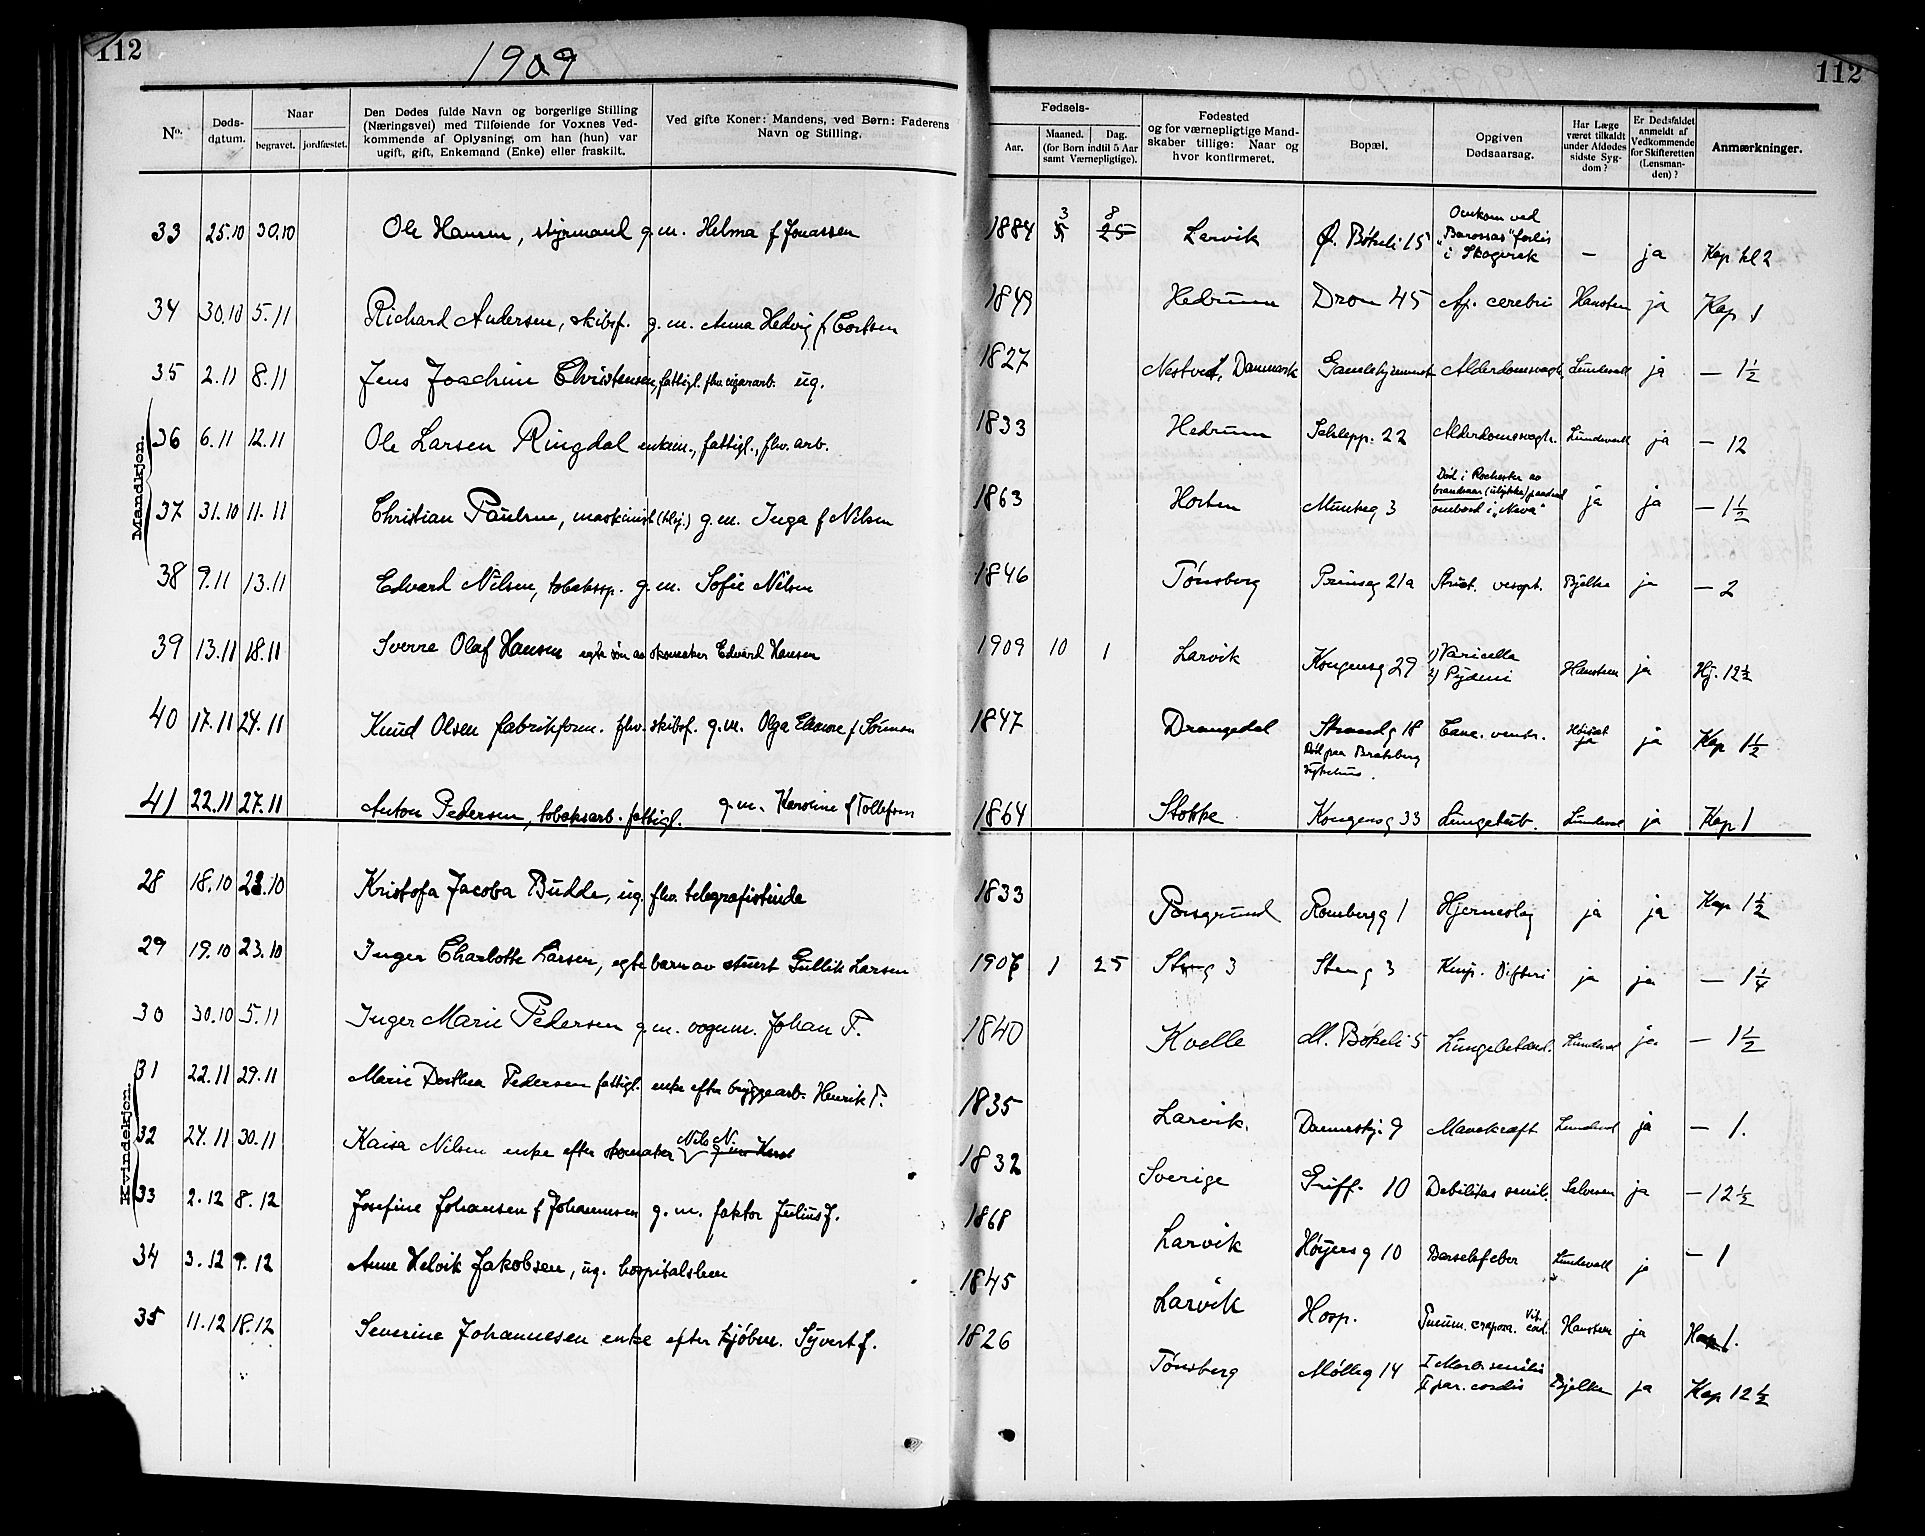 112
1909
112
No.
Døds-
datum.
Naar
begravet. jordfæstet.
Den Dødes fulde Navn og borgerlige Stilling
(Næringsvei) med Tilføiende for Voxnes Ved-
kommende af Oplysning, om han (hun) var
ugift, gift, Enkemand (Enke) eller fraskilt.
Ved gifte Koner: Mandens, ved Børn: Faderens
Navn og Stilling.
Fødsels-
Aar.
Maaned. Dag.
(for Børn indtil 5 Aar
samt Værnepligtige).
Fødested
og for værnepligtige Mand-
skaber tillige: Naar og
hvor konfirmeret.
Bopæl.
Opgiven
Dødsaarsag.
Har Læge
været tilkaldt
under Afdødes
sidste Syg-
dom?
Er Dødsfaldet
anmeldt af
Vedkommende
for Skifteretten
(Lensman-
den)?
Anmærkninger.
Mandkjøn.
33 25.10 30.10 Ole Hansen, styrmand g.m. Helma f Jonassen 1884 3 8 Larvik Ø. Bøkeli 15 Omkom ved
"Barossas" forlis
i Skagerak — ja Kap kl 2
34 30.10 5.11 Richard Andersen, skibsf. g.m. Anna Hedvig f 1849 Hedrum Dron 45 Ap. cerebri Hansteen ja Kap 1
35 2.11 8.11 Jens Joachim Christensen, fattigl. fhv. cigararb. ug. 1827 Nestved, Danmark Alderdomssvagh. Lundevall ja — 1½
36 6.11 12.11 Ole Larsen Ringdal enkem., fattigl., fhv. arb. 1833 Hedrum Schlepp. 22 Alderdomssvagh. Lundevall ja — 12
37 31.10 11.11 Christian Paulsen, maskinist g.m. Inga f Nilsen 1863 Horten Munkeg 3 Død i Rochester av
brandsaar (ulykke)
ombord i "Neva" ja ja — 1½
38 9.11 13.11 Edvard Nilsen, tobaksp. g.m. Sofie Nilsen 1846 Tønsberg Prinseg 21a Bjelke ja — 2
39 13.11 18.11 Sverre Olaf Hansen egte søn av skomaker Edvard Hansen 1909 10 1 Larvik Kongensg 29 1) Varicella
2) Hansteen ja Hj. 12½
40 17.11 24.11 Knud Olsen fabrikform. fhv. skibsf. g.m. Olga Elenore f Sørensen 1847 Drangedal Strandg 18
Død paa Bratsberg
sykehus. Canc. ventr. ja ja Kap 1½
41 22.11 27.11 Anton Pedersen, tobaksarb. fattigl. g.m. Karoline f Tollefsen 1864 Stokke Kongensg 33 Lungetub. Lundeval ja Kap 1
Kvindekjøn.
28 18.10 23.10 Kristofa Jacoba Budde, ug. fhv. telegrafistinde 1833 Porsgrund Rombergg 1 Hjerneslag ja ja Kap 1½
29 19.10 23.10 Inger Charlotte Larsen, egte barn av stuert Gullik Larsen 1906 1 25 Steng 3 Steng 3 Krup. Difteri ja ja — 1¼
30 30.10 5.11 Inger Marie Pedersen g.m. vognm. Johan P. 1840 Kvelle M. Bøkeli 5 Lungebetænd. Lundeval ja — 1½
31 22.11 29.11 Marie Dorthea Pedersen fattigl. enke efter bryggearb. Henrik P. 1835 Larvik. Dammeskj. 9 Mavekræft Lundeval ja — 1.
32 24.11 30.11 Kaisa Nilsen enke efter skomaker Nils N. 1832 Sverige Griff. 10 Debilitas senil. Salvesen ja — 12½
33 2.12 8.12 Josefine Johansen f Johannesen g.m. faktor Julius J. 1868 Larvik Høyersg 10 Barselsfeber Lundevall ja — 1
34 3.12 9.12 Anne Helvik Jakobsen, ug. hospitalslem 1845 Larvik Hosp. Pneum. crouposa. Vit. cord. Hansteen ja Kap 1.
35 11.12 18.12 Severine Johannesen enke efter kjøbm. Syvert J. 1826 Tønsberg Mølleg 14 I Maras. senilis
II par. cordis Bjelke ja Kap 12½